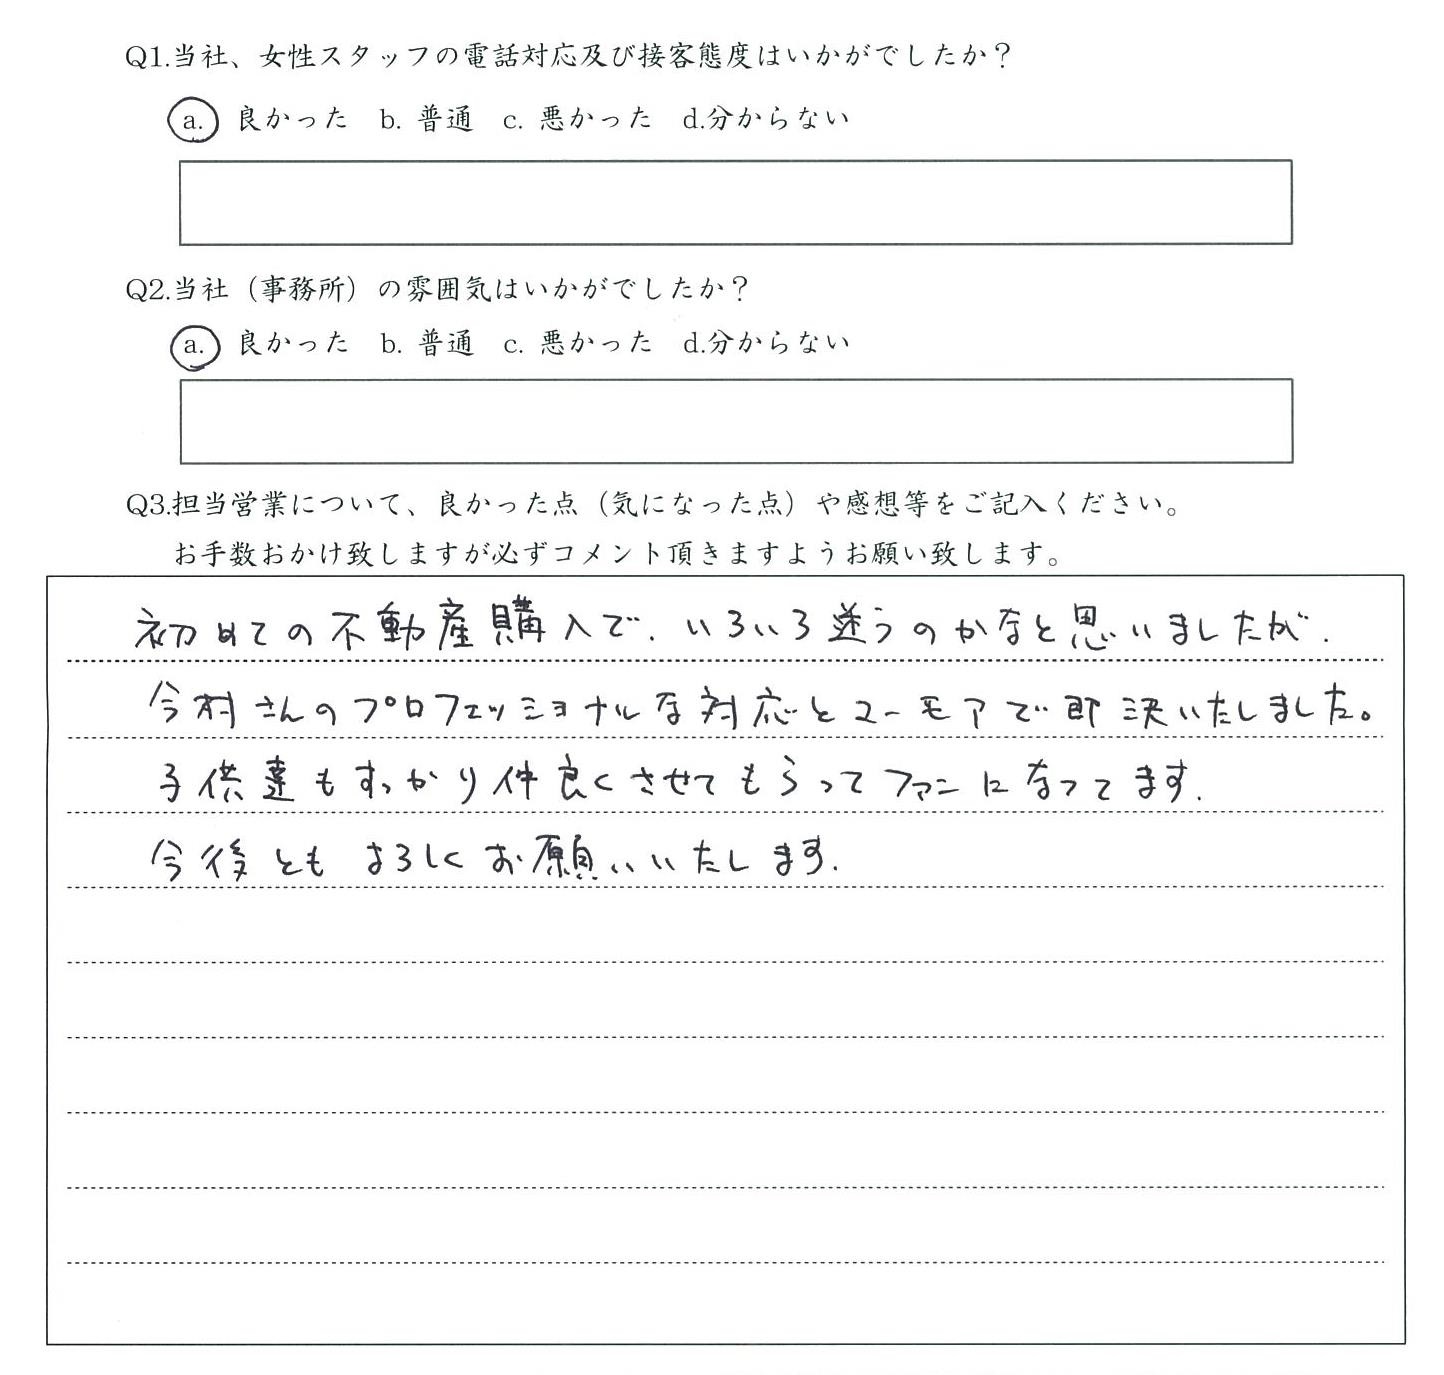 Q1.当社、女性スタッフの電話対応及び接客態度はいかがでしたか？
a. 良かった b. 普通 c. 悪かった d.分からない
Q2.当社（事務所）の雰囲気はいかがでしたか？
a. 良かった b. 普通 c. 悪かった d.分からない
Q3.担当営業について、良かった点（気になった点）や感想等をご記入ください。
お手数おかけ致しますが必ずコメント頂きますようお願い致します。
初めての不動産購入で、いろいろ迷うのかなと思いましたが、
今村さんのプロフェッショナルな対応とユーモアで即決いたしました。
子供達もすっかり仲良くさせてもらってファンになってます。
今後ともよろしくお願いいたします。